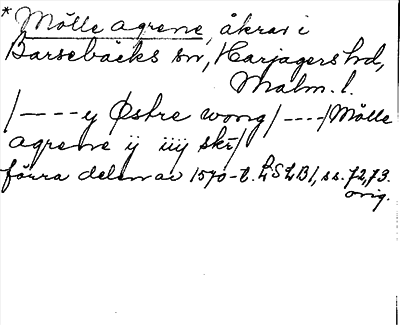 * Mölle agrene, åkrar i
Barsebäcks sn, Harjagers hd,
Malm. l.
/----y Østre wong/----/Mölle
agrene ÿ iiÿ skr/
förra delen av 1570-t. LSLB1, ss. 72, 73.
orig.